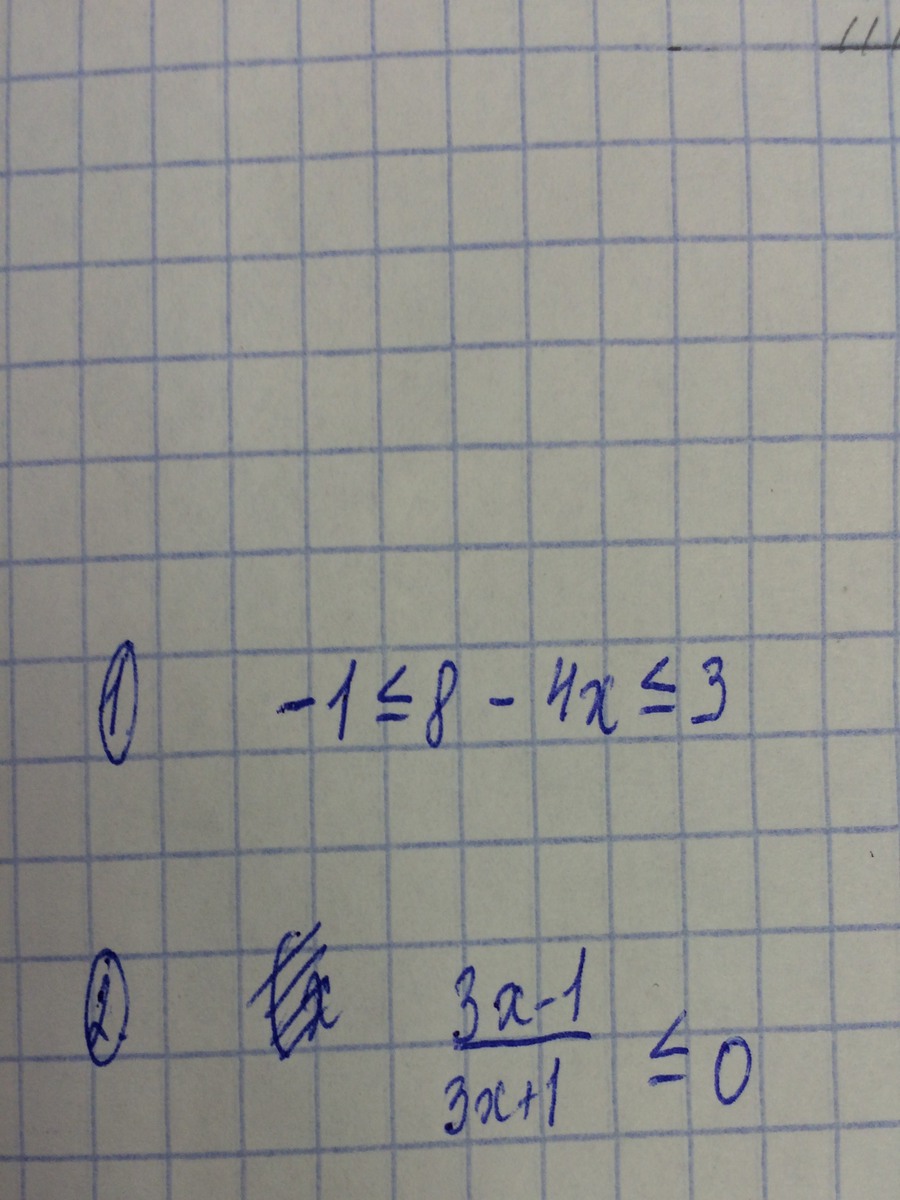 ① -1 ≤ 8 - 4x ≤ 3
② (3x-1)/(3x+1) ≤ 0